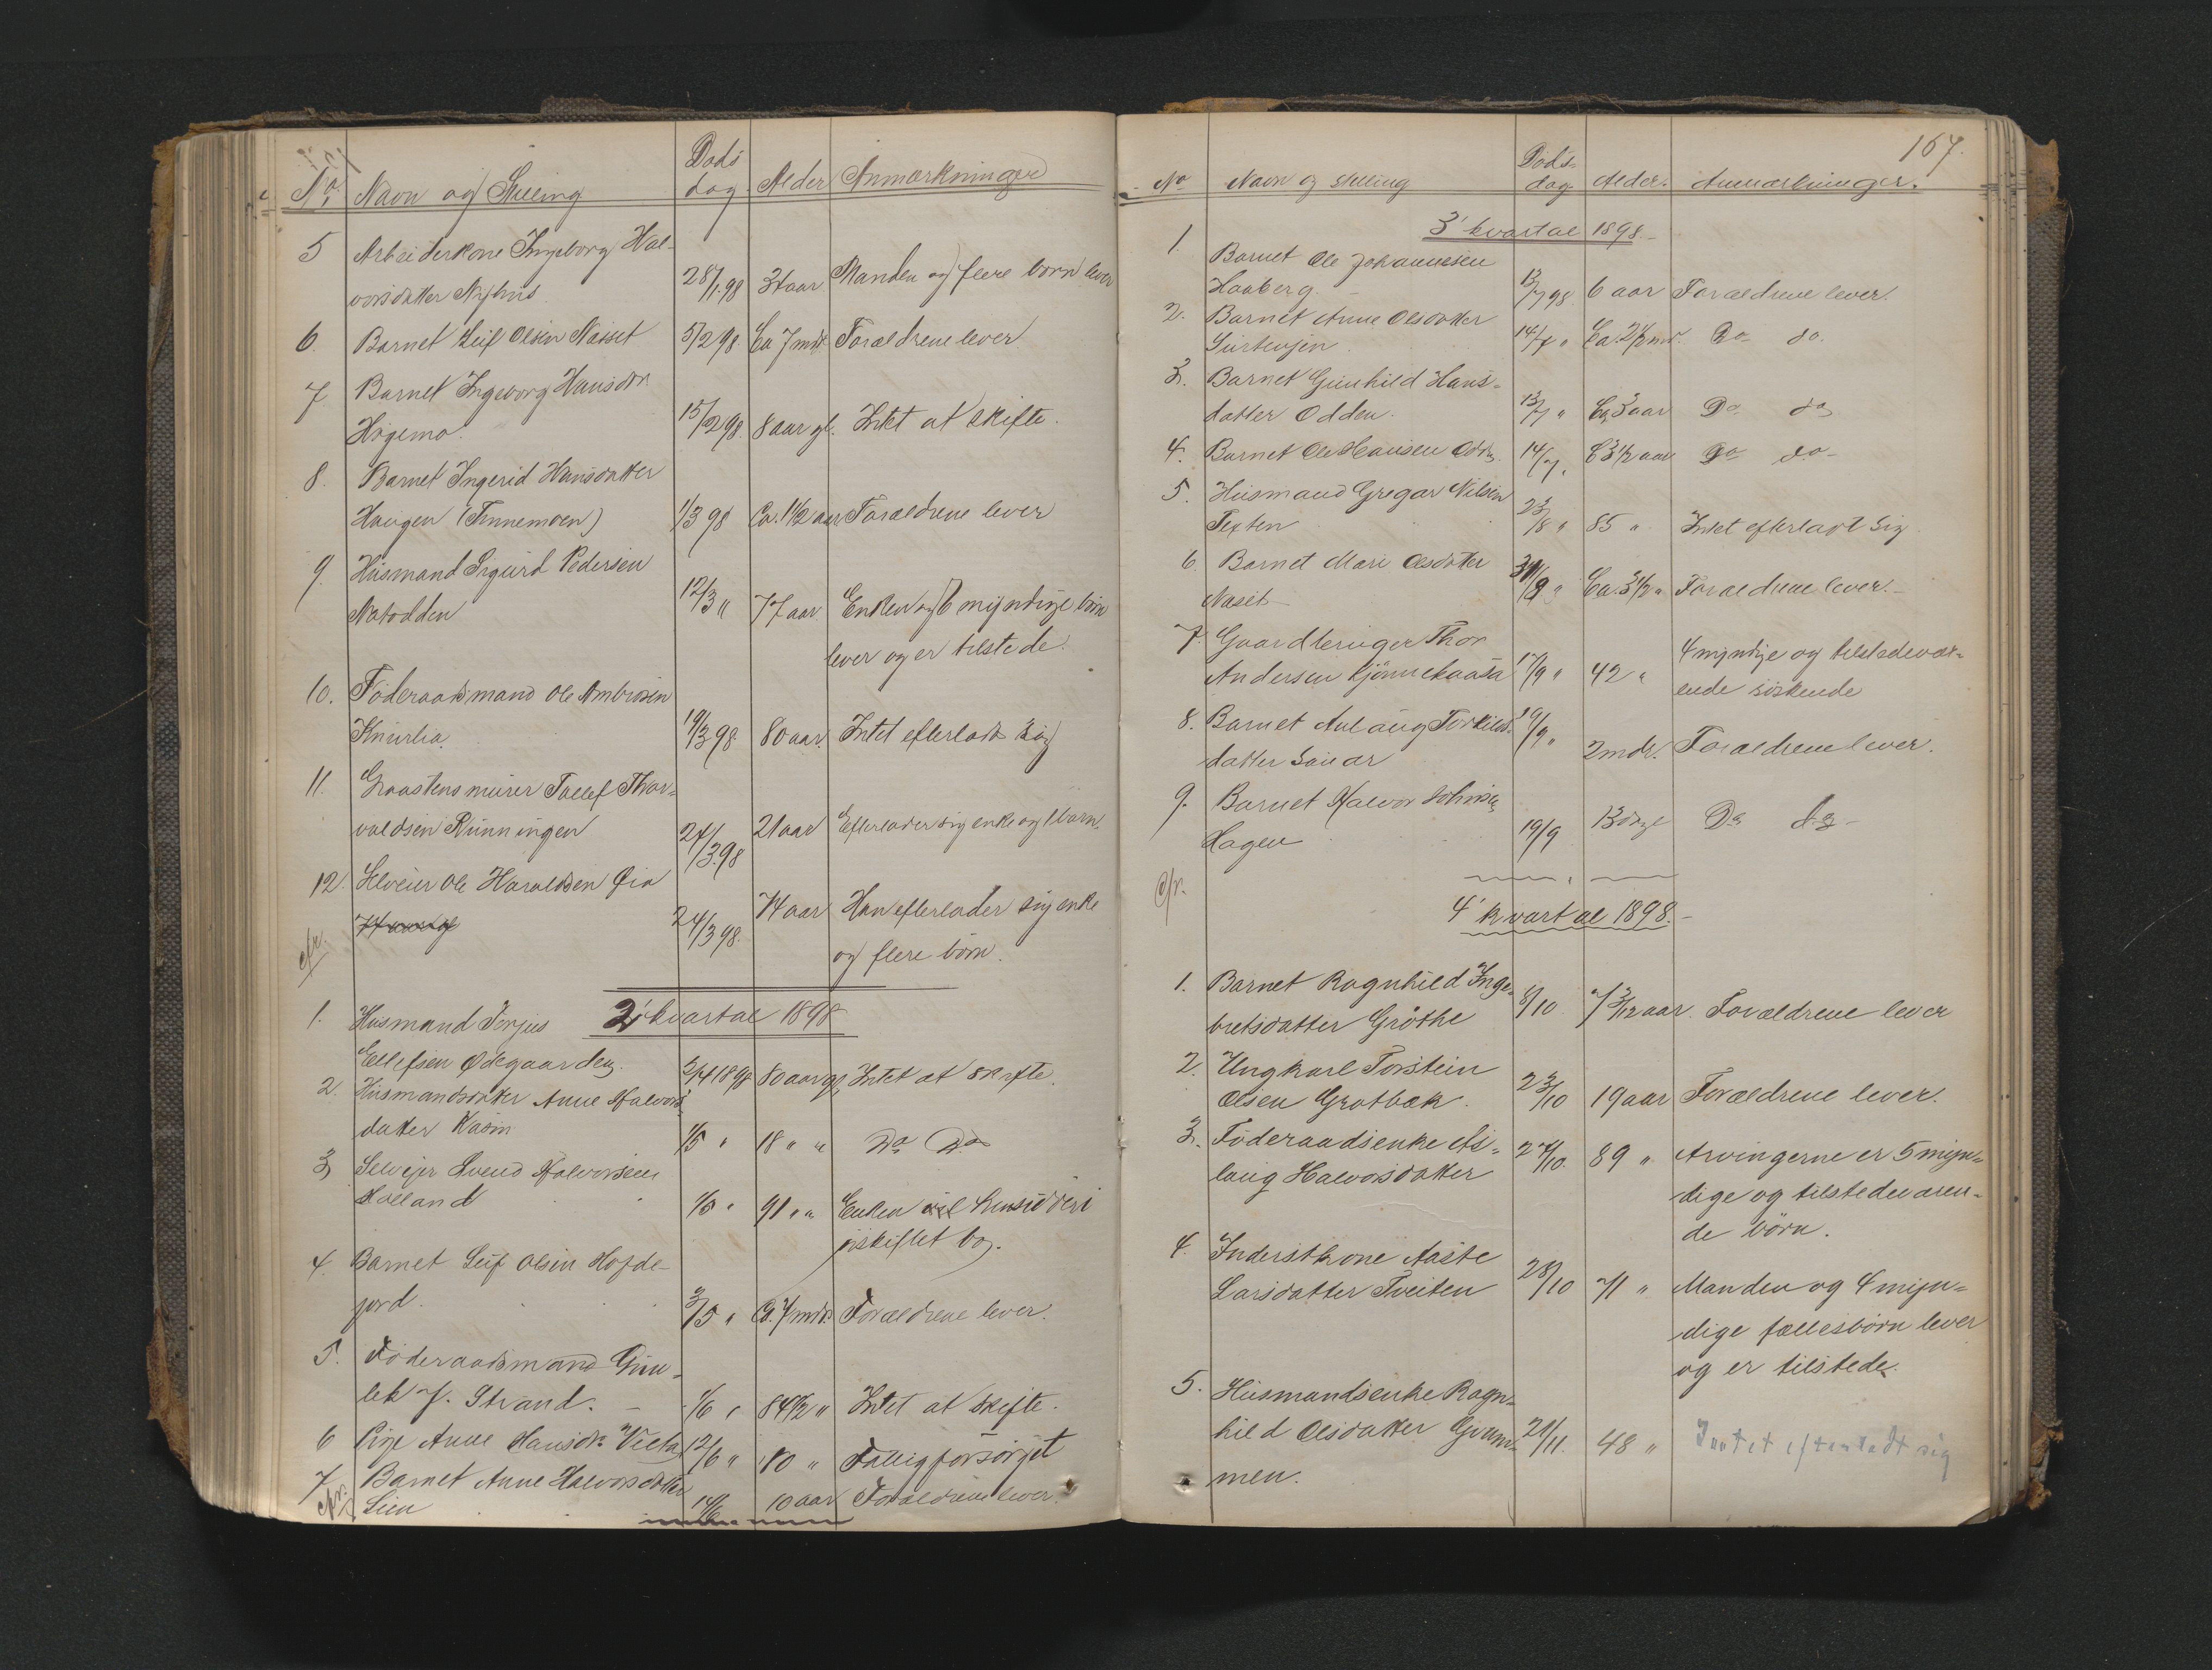 No. Navn og Stilling Døds dag. Alder Anmærkninger
5 Arbeiderkone Ingeborg Hal-
vorsdatter Nyhus 28/1 98 31 aar Manden og flere børn lever
6. Barnet Leif Olsen Næset 5/2 98. Ca 7 mdr Forældrene lever
7 Barnet Ingeborg Hansdtr
Høgemo. 15/2 98. 8 aar gl. Intet at skifte.
8. Barnet Ingerid Hansdatter
Haugen (Tinnemoen) 1/3 98 Ca. 1 1/2 aar Forældrene lever
9. Husmand Sigurd Pedersen
Notodden 12/3 " 77 aar Enken og 6 myndige børn
lever og er tilstede.
10. Føderaadsmand Ole Ambrosen
19/3 98. 80 aar. Intet efterladt sig
11. Graastensmurer Tallef Thor-
valdsen Runningen 24/3 98 21 aar Efterlader sig enke og 1 barn.
12. Selveier Ole Haraldsen Øia
24/3 98. 74 aar Han efterlader sig enke
og flere børn.
cfr.
2' kvartal 1898
1. Husmand Torjus
Ellefsen Ødegaarden. 2/4 1898 80 aar gl. Intet at skifte.
2. Husmandsdatter Anne Halvors-
datter Kasin 1/5 " 18 " " Do Do
3 Selveier Svend Halvorsen
Holland 1/5 " 91 " " Enken vil hensidde i
uskiftet bo.
4. Barnet Leif Olsen Hofde-
jord. 3/5 " Ca. 7 mdr. Forældrene lever.
5. Føderaadsmand Gun-
lek J. Strand. 1/6 " 84 1/2 " Intet at skifte.
6 Pige Anne Hansdtr 12/6 " 80 " Fattigforsørget
7 Barnet Anne Halvorsdatter
cfr. Lien 14/6 10 aar Forældrene lever.
167.
No Navn og stilling Døds-dag. Alder. Anmærkninger.
3' kvartal 1898.
1. Barnet Ole Johannesen
Haaberg. 13/7 98. 6 aar Forældrene lever.
2. Barnet Anne Olsdatter
14/7 " Ca. 2 1/2 mdr. Do do.
3. Barnet Gunhild Hans-
datter Odden. 13/7 " Ca. 3 aar Do do
4. Barnet Ole Hansen Odden 14/7 " C 3 1/2 aar Do do
5. Husmand Gregar Nilsen
23/8 " 85 " Intet efterladt sig
6 Barnet Mari Olsdatter
Næset Ca. 3 1/2 " Forældrene lever.
7. Gaardbruger Thor
Andersen 17/9 " 42 " 4 myndige og tilstedevær-
ende søskende
8. Barnet Aulaug Torkilds-
datter Sauar 19/9 " 2 mdr. Forældrene lever.
9. Barnet Halvor
Hagen 19/9 13 dage Do do
Cfr.
4' kvartal 1898.
1. Barnet Ragnhild Inge-
bretsdatter Grøthe 8/10 7 3/12 aar. Forældrene lever
2. Ungkarl Torstein
Olsen Grotbæk. 23/10 19 aar Forældrene lever.
3. Føderaadsenke As-
laug Halvorsdatter 27/10. 89 " Arvingerne er 5 myn-
dige og tilsteden aren-
de børn.
4. Inderstkone Aaste
Larsdatter Tveiten 28/10 71 " Manden og 4 myn-
dige fællesbørn lever
og er tilstede.
5. Husmandsenke Ragn-
hild Olsdatter Grum-
men. 21/11. 48 " Intet efterladt sig